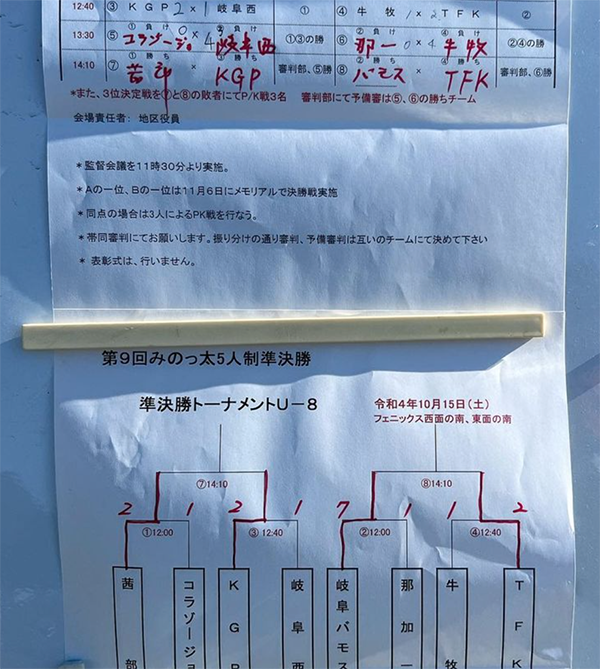 12:40 ③ KGP 2 × 1 岐阜西 ① ④ 牛牧 1 × 2 TFK ②
①負け ②負け
13:30 ⑤ コラゾージョ 0 × 4 岐阜西 ①③の勝 ⑥ 那一 0 × 4 牛牧 ②④の勝
①勝ち ③勝ち ②勝ち ④勝ち
14:10 ⑦ 茜部 × KGP 審判部、⑤勝 ⑧ バモス × TFK 審判部、⑥勝
*また、3位決定戦を⑦と⑧の敗者にてP/K戦3名 審判部にて予備審は⑤、⑥の勝ちチーム
会場責任者: 地区役員
*監督会議を11時30分より実施。
*Aの一位、Bの一位は11月6日にメモリアルで決勝戦実施
*同点の場合は3人によるPK戦を行なう。
*帯同審判にてお願いします。振り分けの通り審判、予備審判は互いのチームにて決めて下さい
* 表彰式は、行いません。
第9回みのっ太5人制準決勝
準決勝トーナメントU-8
令和4年10月15日(土)
フェニックス西面の南、東面の南
⑦14:10 ⑧14:10
2 1 2 1 7 1 1 2
①12:00 ③12:40 ②12:00 ④12:40
茜部
コラゾージョ
KGP
岐阜西
岐阜バモス
那加一
牛牧
TFK